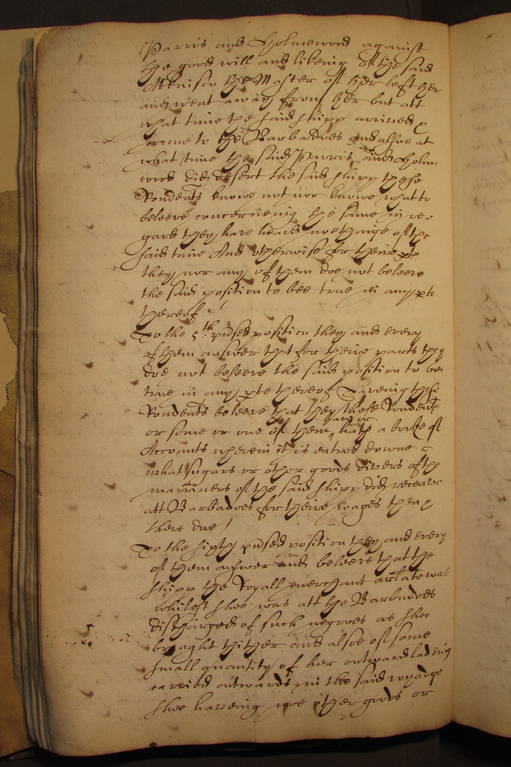 Parris and Holmewood against
the good will and likeing of the said
Attkison the Master of her left her
and went away from her but att
what time the said shipp arrived
came to the Barbadoes and alsoe at
what time the said Parris and Holm
wood did desert the said shipp these
Rondents knowe not nor knowe what to
beleeve concerneing the same in re-
gard they have heard nothinge of the
said time And otherwise for theire pte
they nor any of them doe not beleeve
the said position to bee true in any pte
thereof
To the 5th position they and every
of them answer that for theire parts they
doe not beleeve the said position to bee
true in any pte thereof Saveing these
Rondents beleeve that they these Rondents
or some or one of them have or hath a booke of
Accounts wherein it is entred downe
what sugars or other goods divers of the
marriners of the said shipp did receave
att Barbadoes for theire wages then
there due
To the sixth position they and every
of them answer and beleeve that the
shipp the Royall merchant arlate was
whilest shee was att the Barbadoes
discharged of such negroes as shee
brought thither and alsoe of some
small quantity of her outward ladeing
carried outwards in the said voyadge
shee haveing noe other goods or